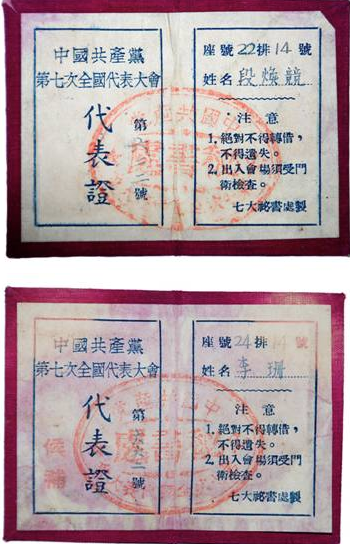 中國共產黨
第七次全國代表大會
代表證
第 二號
座號22排14號
姓名 段煥競
注意
1. 絕對不得轉借，
不得遺失。
2. 出入會場須受門
衛檢查。
七大祕書處製
中國共產黨
第七次全國代表大會
代表證
第 號
候補
座號24排14號
姓名 李珊
注意
1. 絕對不得轉借，
不得遺失。
2. 出入會場須受門
衛檢查。
七大祕書處製